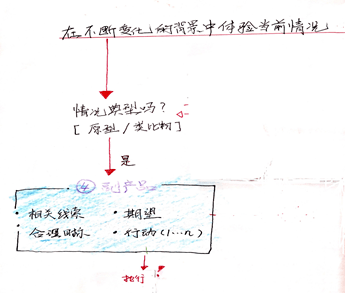 在不断变化的背景中体验当前情况
情况典型吗？
[原型/类比物]
是
④ 副产品
• 相关线索 • 期望
• 合理目标 • 行动(1…n)
执行